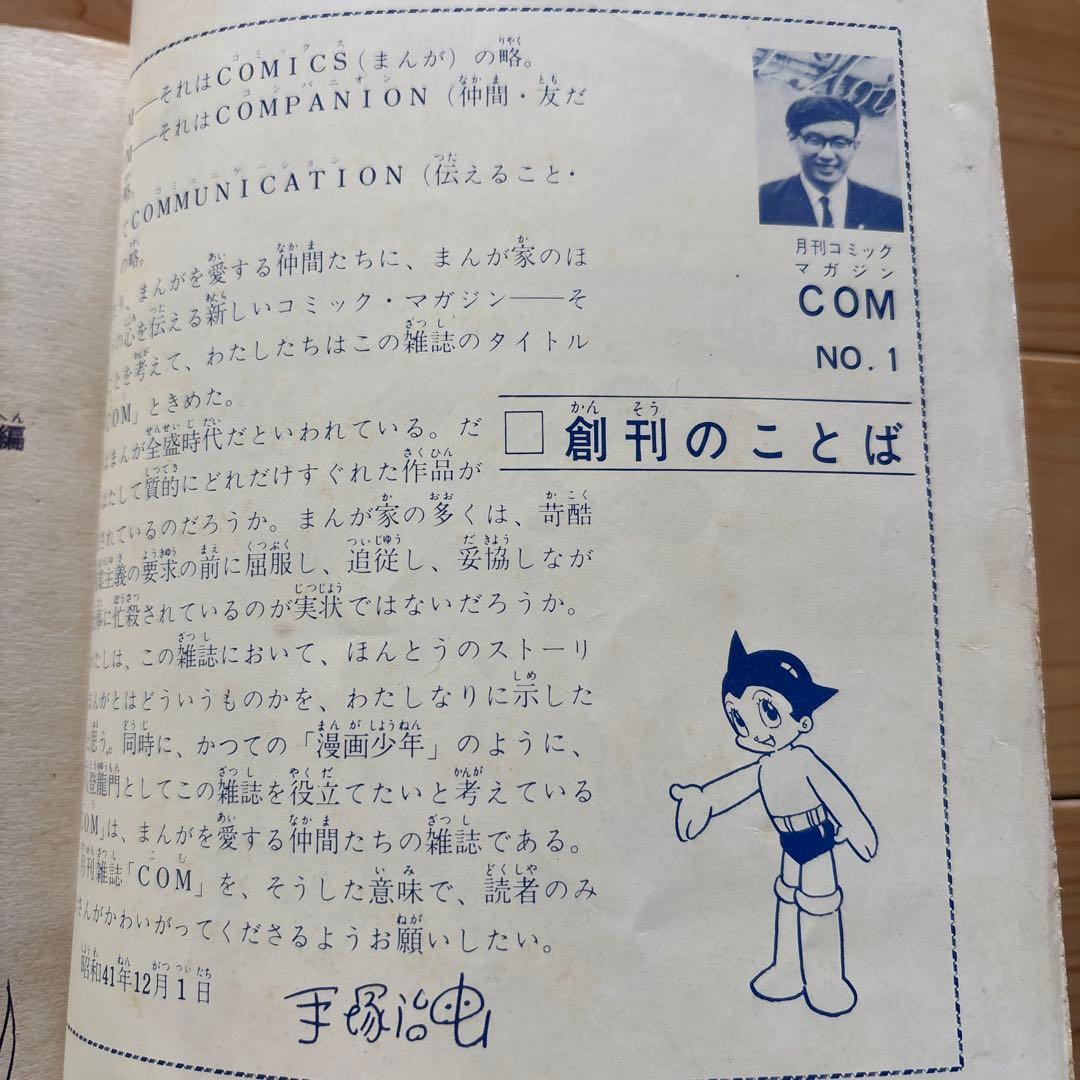 月刊コミック
マガジン
COM
NO.1
□創刊のことば
M——それはCOMICS(まんが)の略。
M——それはCOMPANION(仲間・友だ
略。
COMMUNICATION(伝えること・
の略。
り、まんがを愛する仲間たちに、まんが家のほ
の心を伝える新しいコミック・マガジン——そ
とを考えて、わたしたちはこの雑誌のタイトル
COM」ときめた。
まんが全盛時代だといわれている。だ
はたして質的にどれだけすぐれた作品が
されているのだろうか。まんが家の多くは、苛酷
主義の要求の前に屈服し、追従し、妥協しなが
に忙殺されているのが実状ではないだろうか。
たしは、この雑誌において、ほんとうのストーリ
まんがとはどういうものかを、わたしなりに示した
思う。同時に、かつての「漫画少年」のように、
登龍門としてこの雑誌を役立てたいと考えている
COM」は、まんがを愛する仲間たちの雑誌である。
月刊雑誌「COM」を、そうした意味で、読者のみ
さんがかわいがってくださるようお願いしたい。
昭和41年12月1日
手塚治虫
編